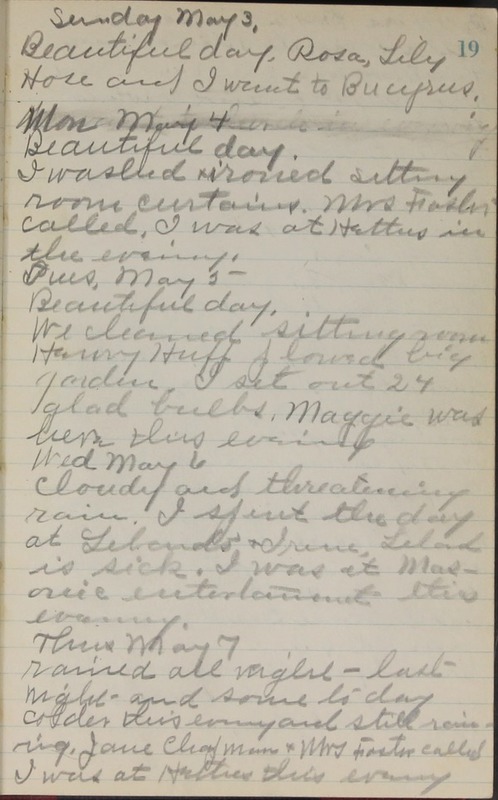 Sunday May 3,
19
Beautiful day. Rosa, Lily
Hose and I went to Bucyrus.
Mon May 4
Beautiful day.
I washed & ironed sitting
room curtains. Mrs Foster
called, I was at Hetties in
the evening.
Tues, May 5-
Beautiful day.
We cleaned sitting room
Harry Huff plowed big
garden. I set out 24
glad bulbs. Maggie was
here this evening
Wed May 6
Cloudy and threatening
rain. I spent the day
at & Irene,
is sick. I was at Mas-
onic entertainment this
evening.
Thus May 7
rained all night - last
night - and some to day
colder this evening and still rain-
ing. Jane Chapman & Mrs Foster called
I was at Hetties this evening